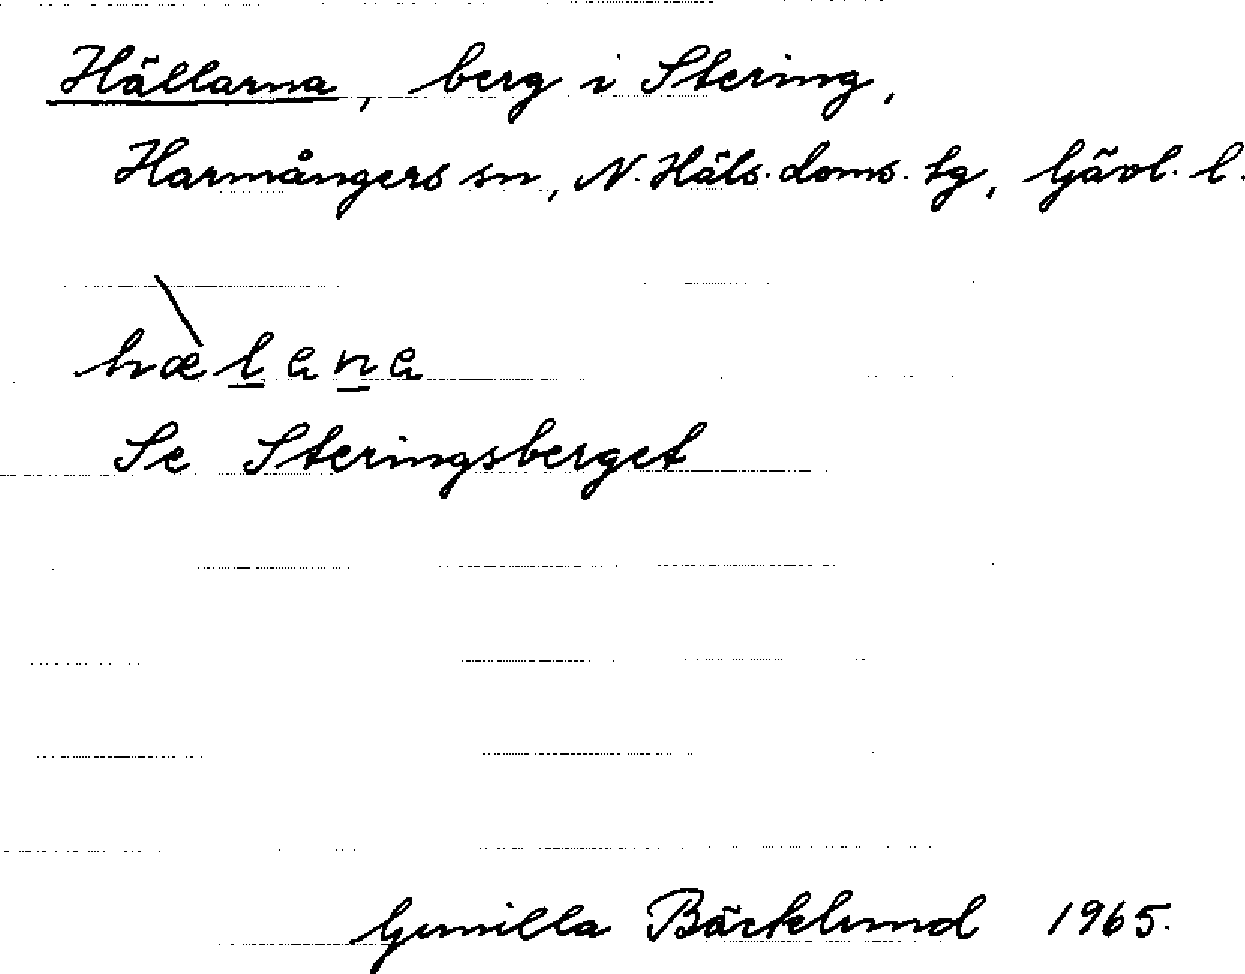 Hällarna, berg i Stering,
Harmångers sn, N. Häls. doms. tg, Gävl. l.
hælana
Se Steringsberget
Gunilla Bäcklund 1965.